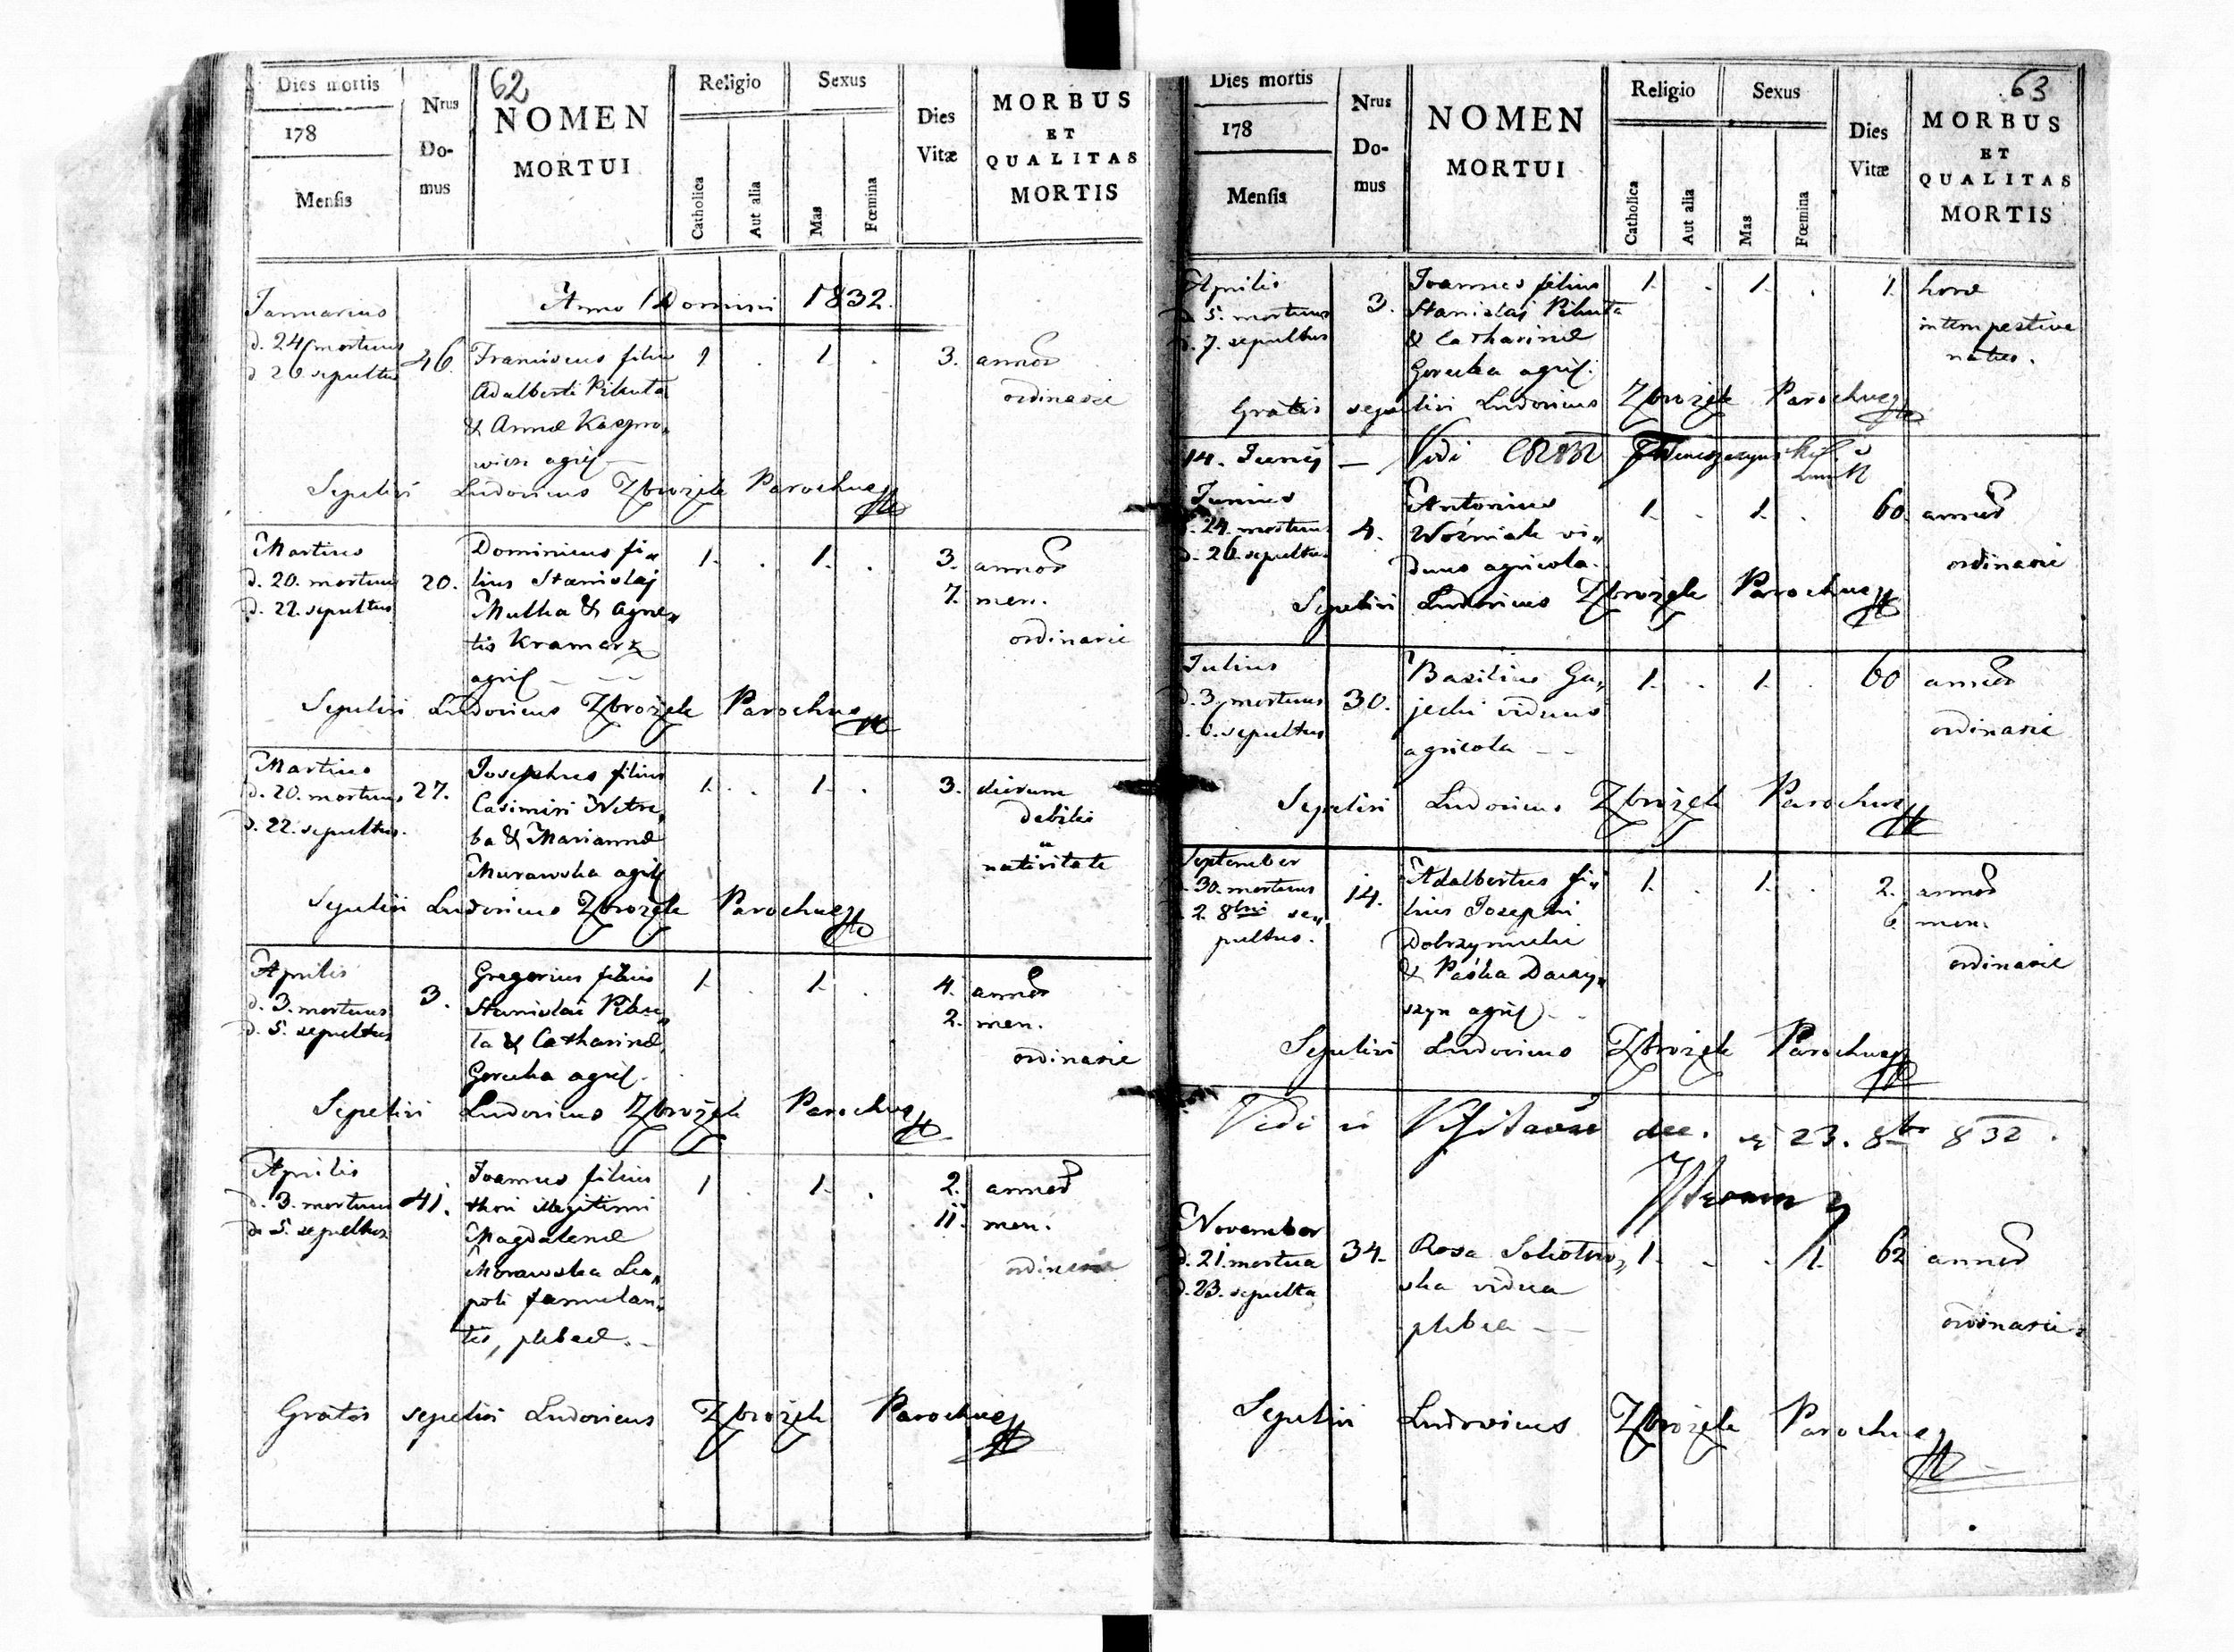 62
Dies mortis
178
Mensis
Nrus
Do-
mus
NOMEN
MORTUI
Religio
Catholica
Aut alia
Sexus
Mas
Fœmina
Dies
Vitæ
MORBUS
ET
QUALITAS
MORTIS
Anno Domini 1832.
Januarius
d. 24 mortuus
d. 26 sepultus
46.
Franciscus filius
Adalberti Pikuta
& Annæ Kaspro„
wicz agric
1 . 1 .
3. annor
ordinarie
Sepelivi Ludovicus Zbrożek Parochus
Martius
d. 20. mortuus
d. 22. sepultus
20.
Dominicus fi„
lius Stanislaj
Mulka & Agne„
tis Kramarz
agric
1. . 1. .
3. annor
7. men.
ordinarie
Sepelivi Ludovicus Zbrożek Parochus
Martius
d. 20. mortuus
d. 22. sepultus.
27.
Josephus filius
Casimiri Wetre„
ba & Mariannæ
Murawska agric
1. . 1. .
3. dierum
debilis
a
nativitate
Sepelivi Ludovicus Zbrożek Parochus
Aprilis
d. 3. mortuus
d. 5. sepultus
3.
Gregorius filius
Stanislai Piku„
ta & Catharinæ
Gorecka agric.
1. . 1. .
4. annor
2. men.
ordinarie
Sepelivi Ludovicus Zbrożek Parochus
Aprilis
d. 3. mortuus
d. 5. sepultus
41.
Joannes filius
thori illegitimi
Magdalenæ
Morawska Leo„
poli famulan„
tis, plebeæ.
1 . 1. .
2. annor
11. men.
ordinarie
Gratis sepelivi Ludovicus Zbrożek Parochus
63
Dies mortis
178
Mensis
Nrus
Do-
mus
NOMEN
MORTUI
Religio
Catholica
Aut alia
Sexus
Mas
Fœmina
Dies
Vitæ
MORBUS
ET
QUALITAS
MORTIS
Aprilis
d. 5. mortuus
d. 7. sepultus
3.
Joannes filius
Stanislaj Pikuta
& Catharinæ
Gorecka agric.
1. . 1. .
1. horæ
intempestive
natus.
Gratis sepelivi Ludovicus Zbrożek Parochus
14. Junij — Vidi
Junius
d. 24. mortuus
d. 26. sepultus
4.
Antonius
Woźniak vi„
duus agricola.
1. . 1. .
60. annor
ordinarie
Sepelivi Ludovicus Zbrożek Parochus
Julius
d. 3. mortuus
d. 6. sepultus
30.
Basilius Ga„
jecki viduus
agricola
1. . 1. .
60 annor
ordinarie
Sepelivi Ludovicus Zbrożek Parochus
September
d. 30. mortuus
d. 2. 8bris se„
pultus.
14.
Adalbertus fi„
lius Josephi
Dobrzymicki
& Paśka Daszy„
szyn agric
1. . 1. .
2. annor
6. men.
ordinarie
Sepelivi Ludovicus Zbrożek Parochus
Vidi 23. 8br 832.
November
d. 21. mortua
d. 23. sepulta
34.
Rosa Sokołow„
ska vidua
plebea
1. . . 1.
62 annor
ordinarie.
Sepelivi Ludovicus Zbrożek Parochus